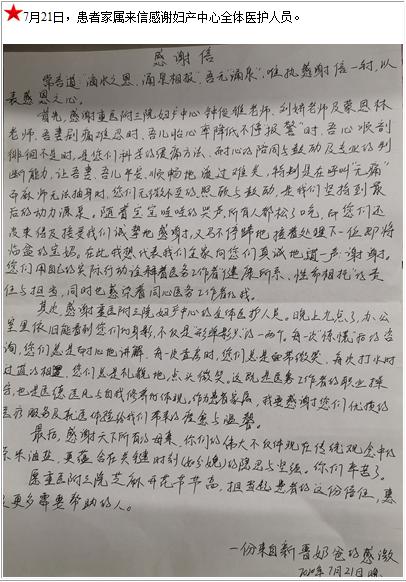 7月21日，患者家属来信感谢妇产中心全体医护人员。
感谢信
常言道"滴水之恩，涌泉相报"，吾无"涌泉"，唯执感谢信一封，以
表感恩之心。
首先，感谢重医附三院妇产中心钟 老师、刘妍老师及蔡恩林
老师。吾妻剧痛难忍时、吾儿胎心率降低不停报警"时、吾心
徘徊不是时，是您们科学的缓痛方法、耐心的陪同与鼓动及专业的判
断能力，让吾妻、吾儿平安、顺畅地渡过难关。特别是在呼叫"无痛"
麻师无法抽身时，您们无微不至的照顾与鼓动，是我们坚持到最
后的动力源泉。随着宝宝哇哇的哭声，所有人都松了口气，而您们还
没来得及接受我们诚挚地感谢，又马不停蹄地接着处理下一位即将
临盆的宝妈。在此我想代表我们全家向您们真诚地道一声：谢谢。
您们用自己的实际行动诠释着医务工作者"健康所系、性命相托"的责
任与担当，同时也感染着同为医务工作者的我。
其次，感谢重医附三院妇产中心的全体医护人员。晚上九点了，办公
室里依旧能看到您们的身影，不仅是形单影只的一两个。每一次"惊慌"后的咨
询，您们总是耐心地讲解，每一次查房时，您们总是面带微笑，每次打水时
过道的相遇，您们总是礼貌地点头微笑。这既是医务工作者的职业操
守，也是医德医风与自我修养的体现。作为患者家属，我要感谢您们优质的
医疗服务及就医体验给我们带来的 与温馨。
最后，感谢天下所有的母亲，你们的伟大不仅体现在传统观念中的
柴米油盐，更蕴含在关键时刻(如分娩)的隐忍与坚强。你们辛苦了。
愿重医附三院芝麻开花节节高，担当起患者的这份信任，惠
及更多需要帮助的人。
一份来自新晋奶爸的感激
2020年7月21日晚